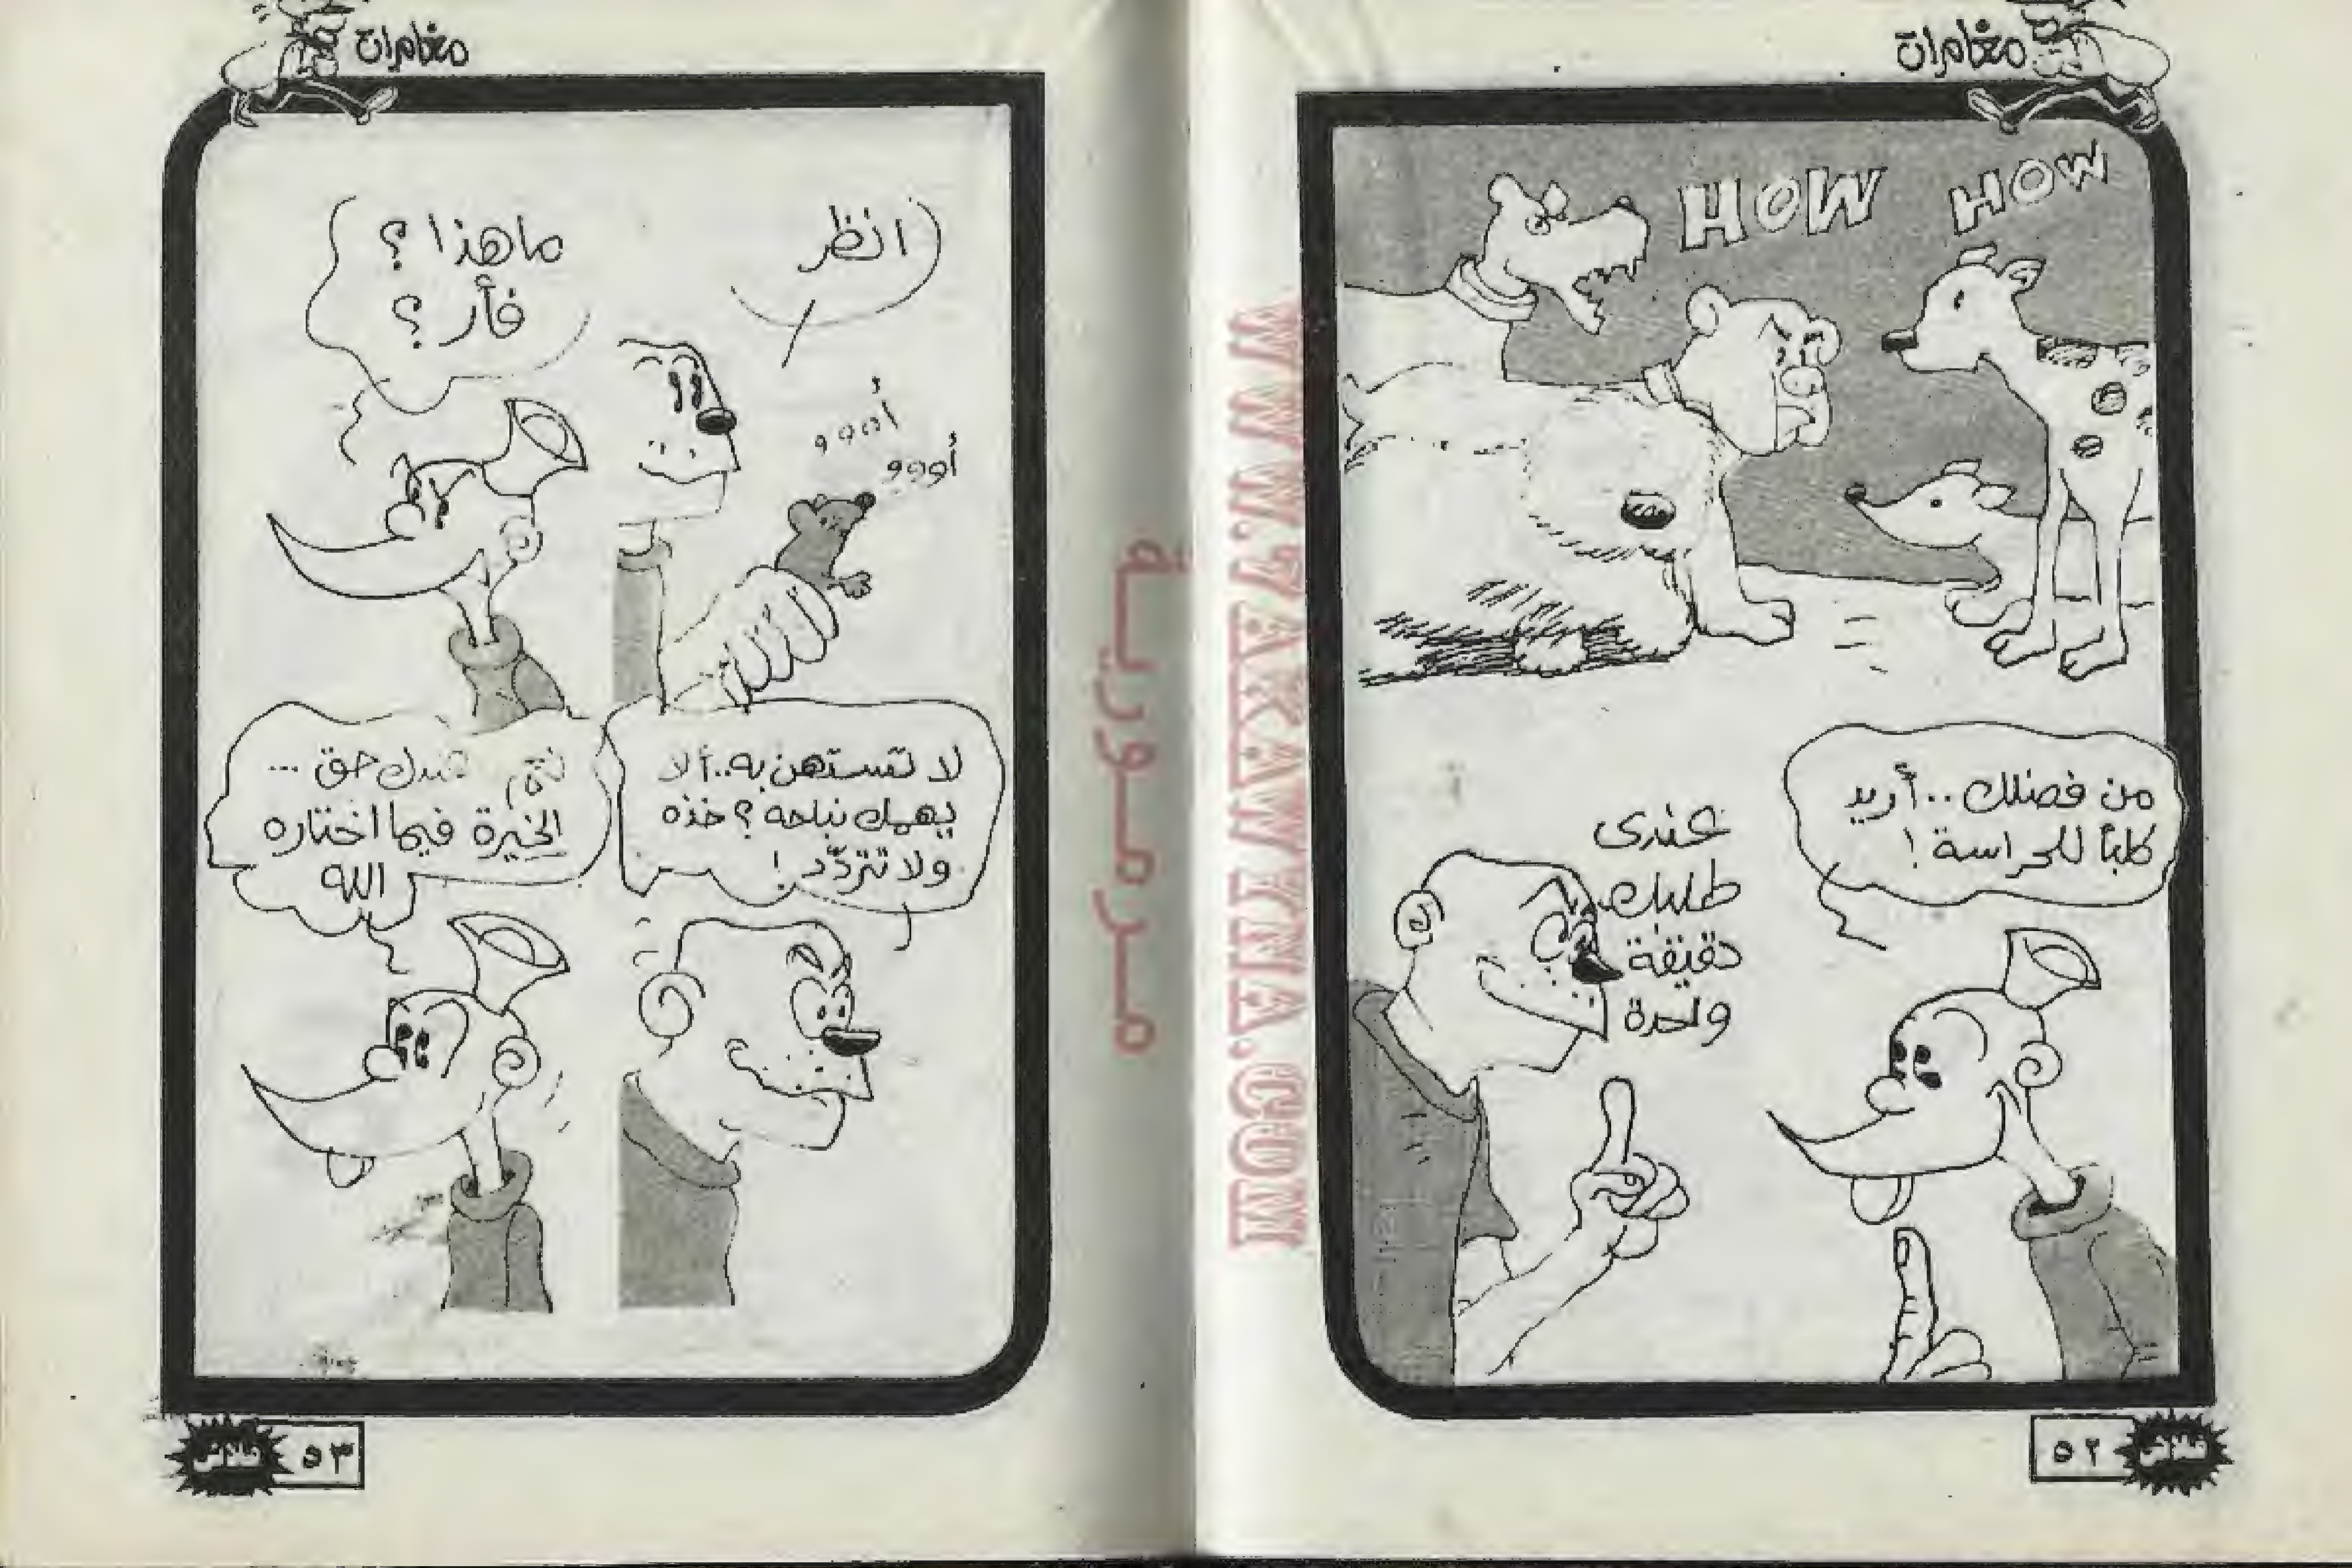 مغامرات
HOW HOW
من فضلك.. أريد
كلباً للحراسة!
عندى
طلبك
دقيقة
واحدة
فلاش
٥٢
WWW.7AKAWEENA.COM
مرمورية
مغامرات
انظر
ما هذا؟
فأر؟
أووو
أووو
لا تستهن به.. ألا
يهمك نباحه؟ خذه
ولا تتردد!
عندك حق ...
الخيرة فيما اختاره
الله
فلاش
٥٣